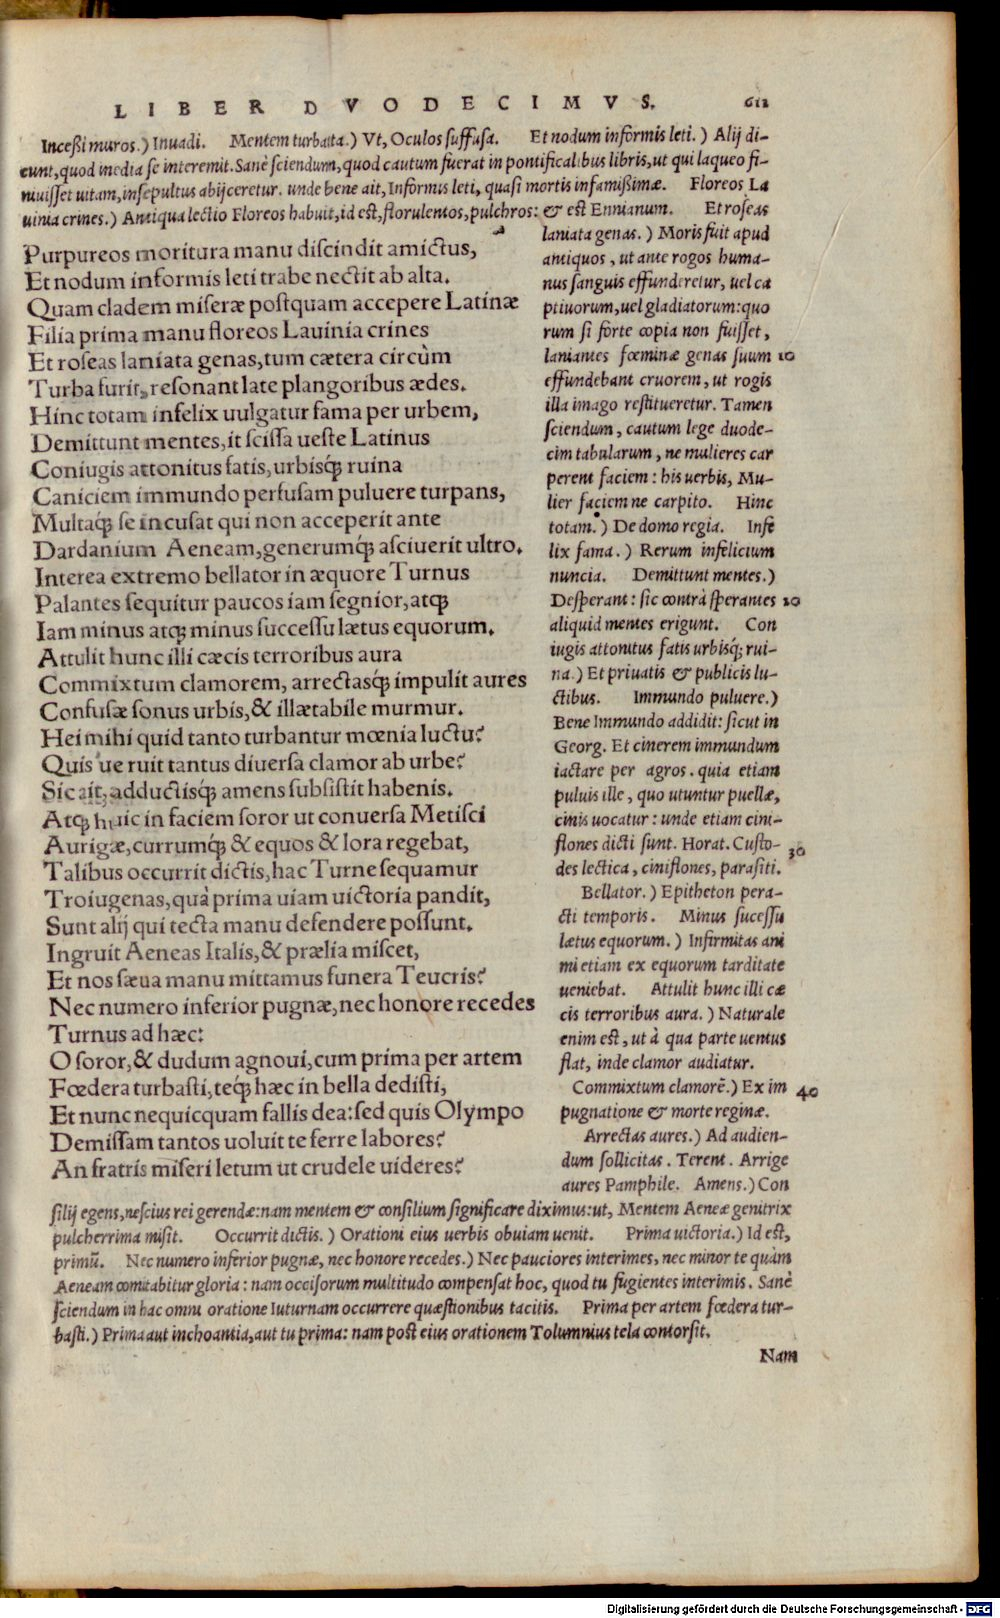 LIBER DVODECIMVS. 611
Incessi muros.) Inuadi. Mentem turbata.) Vt, Oculos suffusa. Et nodum informis leti.) Alij di-
cunt, quod inedia se interemit. Sanè sciendum, quod cautum fuerat in pontificalibus libris, ut qui laqueo fi-
niuisset uitam, insepultus abijceretur. unde bene ait, Informis leti, quasi mortis infamißimæ. Floreos La
uinia crines.) Antiqua lectio Floreos habuit, id est, florulentos, pulchros: & est Ennianum. Et roseas
Purpureos moritura manu discindit amictus,
Et nodum informis leti trabe nectit ab alta.
Quam cladem miseræ postquam accepere Latinæ
Filia prima manu floreos Lauinia crines
Et roseas laniata genas, tum cætera circùm
Turba furit, resonant late plangoribus ædes.
Hinc totam infelix uulgatur fama per urbem,
Demittunt mentes, it scissa ueste Latinus
Coniugis attonitus fatis, urbisq́; ruina
Caniciem immundo perfusam puluere turpans,
Multaq́; se incusat qui non acceperit ante
Dardanium Aeneam, generumq́; asciuerit ultro.
Interea extremo bellator in æquore Turnus
Palantes sequitur paucos iam segnior, atq;
Iam minus atq; minus successu lætus equorum.
Attulit hunc illi cæcis terroribus aura
Commixtum clamorem, arrectasq́; impulit aures
Confusæ sonus urbis, & illætabile murmur.
Hei mihi quid tanto turbantur mœnia luctu?
Quis ue ruit tantus diuersa clamor ab urbe?
Sic ait, adductisq́; amens subsistit habenis.
Atq; huic in faciem soror ut conuersa Metisci
Aurigæ, currumq́; & equos & lora regebat,
Talibus occurrit dictis, hac Turne sequamur
Troiugenas, quà prima uiam uictoria pandit,
Sunt alij qui tecta manu defendere possunt.
Ingruit Aeneas Italis, & prælia miscet,
Et nos sæua manu mittamus funera Teucris?
Nec numero inferior pugnæ, nec honore recedes
Turnus ad hæc:
O soror, & dudum agnoui, cum prima per artem
Fœdera turbasti, teq́; hæc in bella dedisti,
Et nunc nequicquam fallis dea: sed quis Olympo
Demissam tantos uoluit te ferre labores?
An fratris miseri letum ut crudele uideres?
laniata genas.) Moris fuit apud
antiquos, ut ante rogos huma-
nus sanguis effunderetur, uel ca
ptiuorum, uel gladiatorum: quo
rum si forte copia non fuisset,
laniantes fœminæ genas suum 10
effundebant cruorem, ut rogis
illa imago restitueretur. Tamen
sciendum, cautum lege duode-
cim tabularum, ne mulieres car
perent faciem: his uerbis, Mu-
lier faciem ne carpito. Hinc
totam.) De domo regia. Infe
lix fama.) Rerum infelicium
nuncia. Demittunt mentes.)
Desperant: sic contrà sperantes 20
aliquid mentes erigunt. Con
iugis attonitus fatis urbisq́; rui-
na.) Et priuatis & publicis lu-
ctibus. Immundo puluere.)
Bene Immundo addidit: sicut in
Georg. Et cinerem immundum
iactare per agros. quia etiam
puluis ille, quo utuntur puellæ,
cinis uocatur: unde etiam cini-
flones dicti sunt. Horat. Custo- 30
des lectica, ciniflones, parasiti.
Bellator.) Epitheton pera-
cti temporis. Minus sucessu
lætus equorum.) Infirmitas ani
mi etiam ex equorum tarditate
ueniebat. Attulit hunc illi cæ
cis terroribus aura.) Naturale
enim est, ut à qua parte uentus
flat, inde clamor audiatur.
Commixtum clamorẽ.) Ex im 40
pugnatione & morte reginæ.
Arrectas aures.) Ad audien-
dum sollicitas. Terent. Arrige
aures Pamphile. Amens.) Con
silij egens, nescius rei gerendæ: nam mentem & consilium significare diximus: ut, Mentem Aeneæ genitrix
pulcherrima misit. Occurrit dictis.) Orationi eius uerbis obuiam uenit. Prima uictoria.) Id est,
primũ. Nec numero inferior pugnæ, nec honore recedes.) Nec pauciores interimes, nec minor te quàm
Aeneam comitabitur gloria: nam occisorum multitudo compensat hoc, quod tu fugientes interimis. Sanè
sciendum in hac omni oratione Iuturnam occurrere quæstionibus tacitis. Prima per artem fœdera tur-
basti.) Prima aut inchoantia, aut tu prima: nam post eius orationem Tolumnius tela contorsit.
Nam
Digitalisierung gefördert durch die Deutsche Forschungsgemeinschaft - DFG